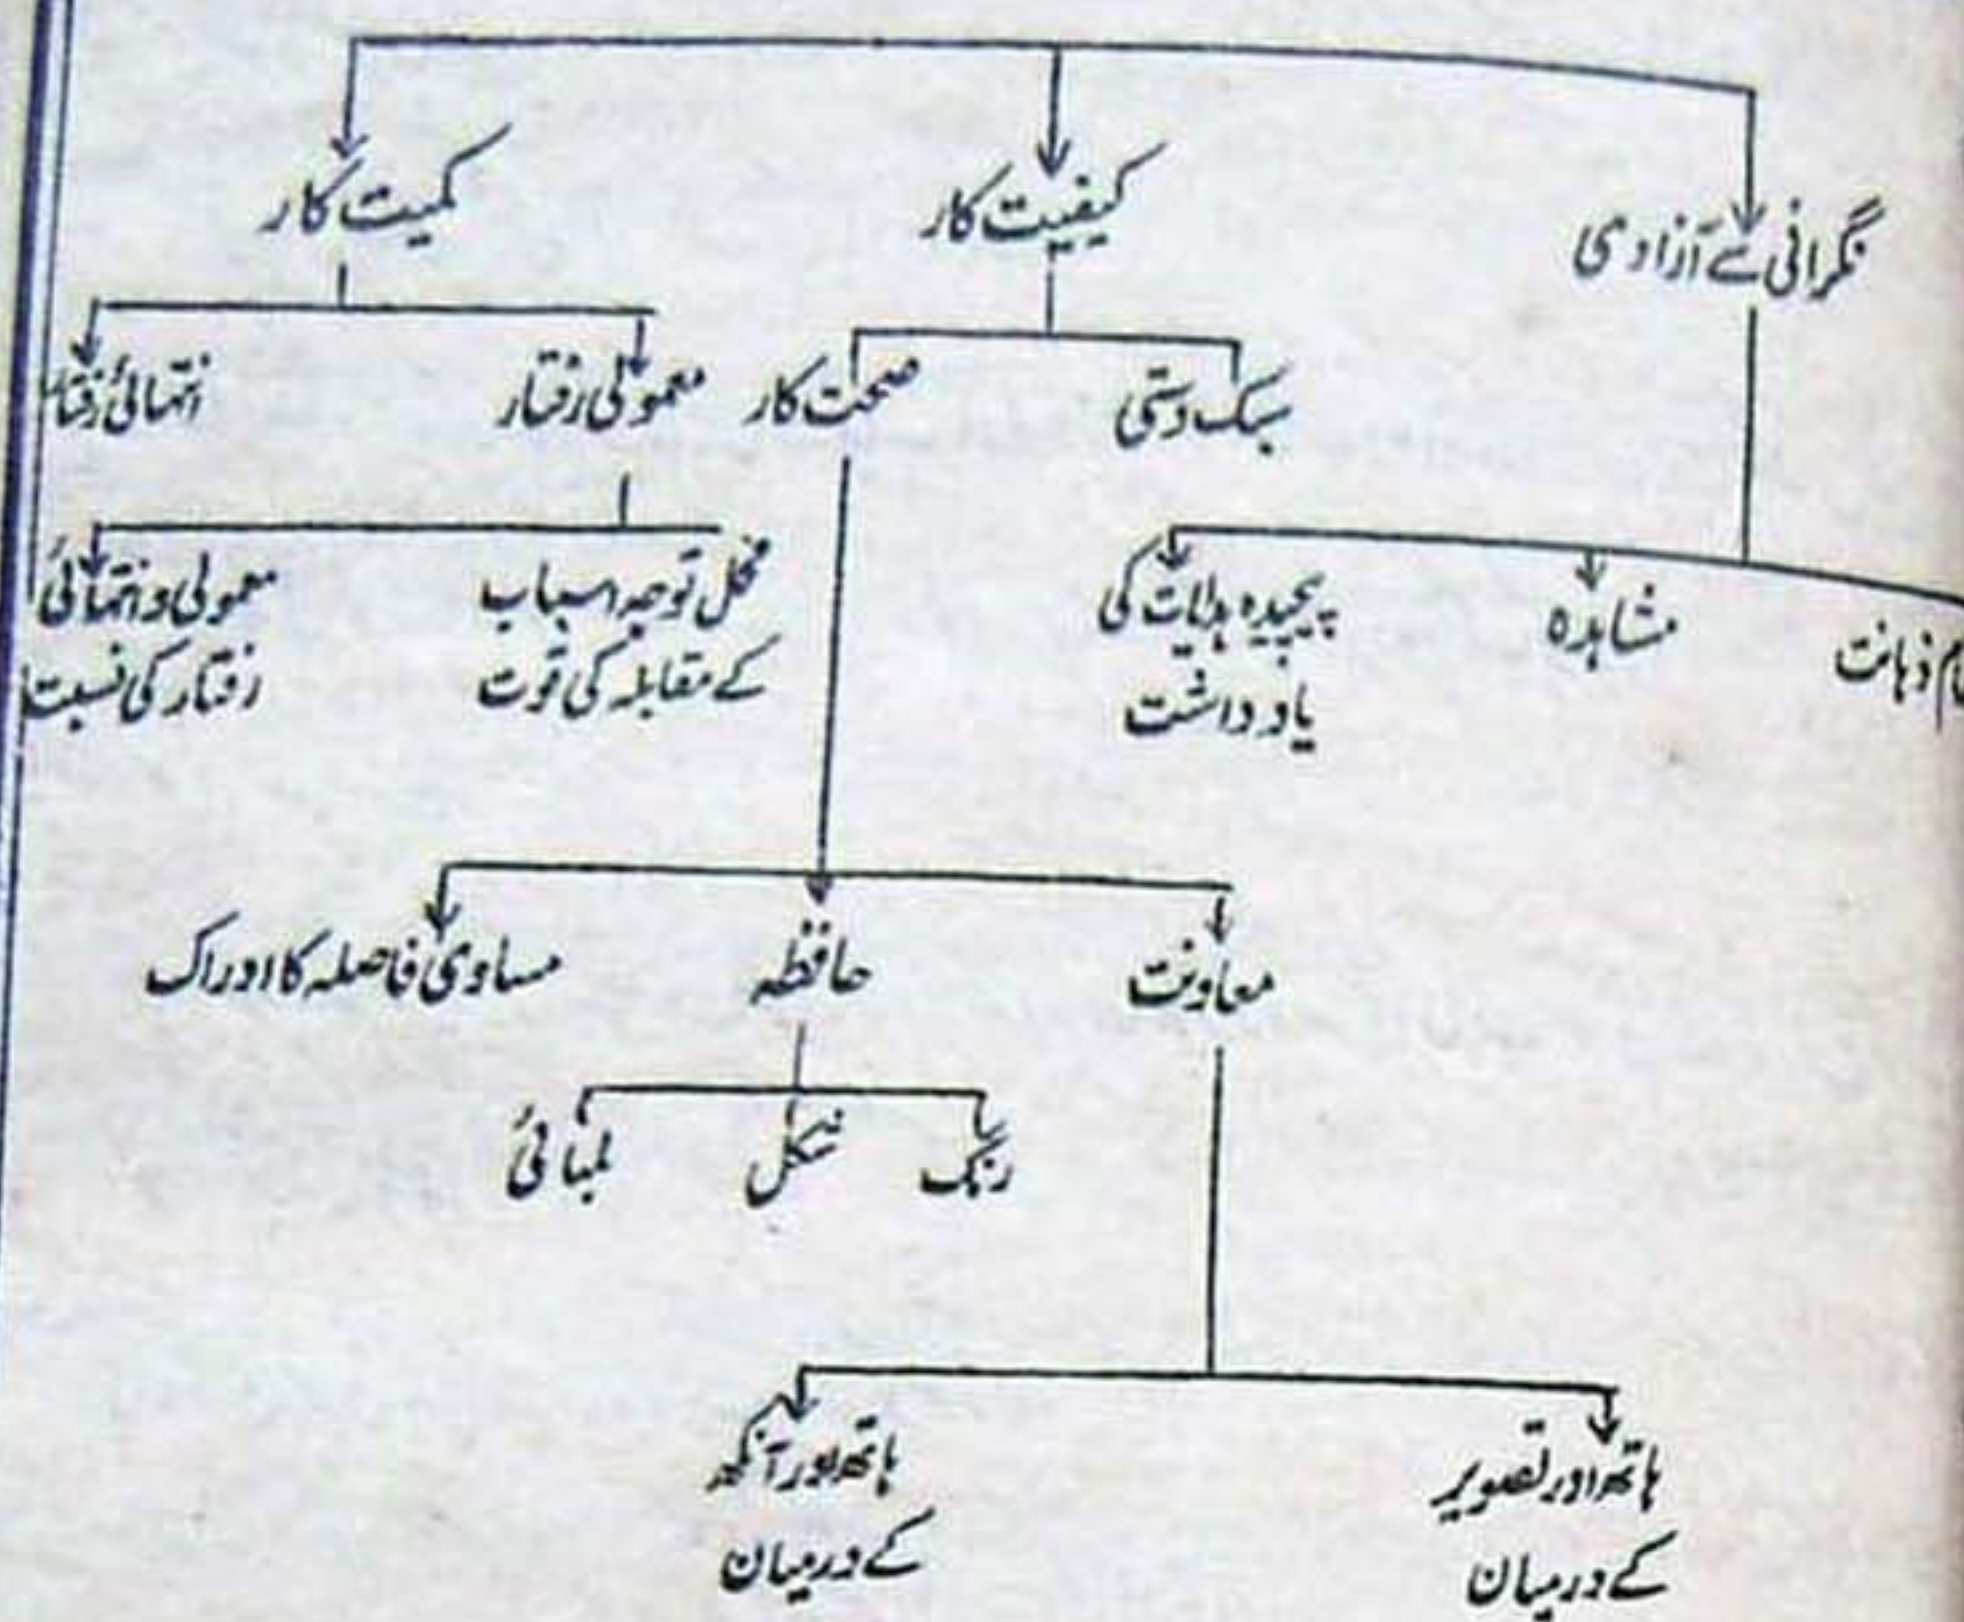 نگرانی سے آزادی
کیفیت کار
کمیت کار
سبک دستی
صحت کار
معمولی رفتار
انتہائی رفتار
ذہانت
مشاہدہ
پیچیدہ ہدایات کی
یادداشت
مخل توجہ اسباب
کے مقابلہ کی قوت
معمولی و انتہائی
رفتار کی نسبت
معاونت
حافظہ
مساوی فاصلہ کا ادراک
رنگ
شکل
لمبائی
ہاتھ اور تصویر
کے درمیان
ہاتھ اور آنکھ
کے درمیان